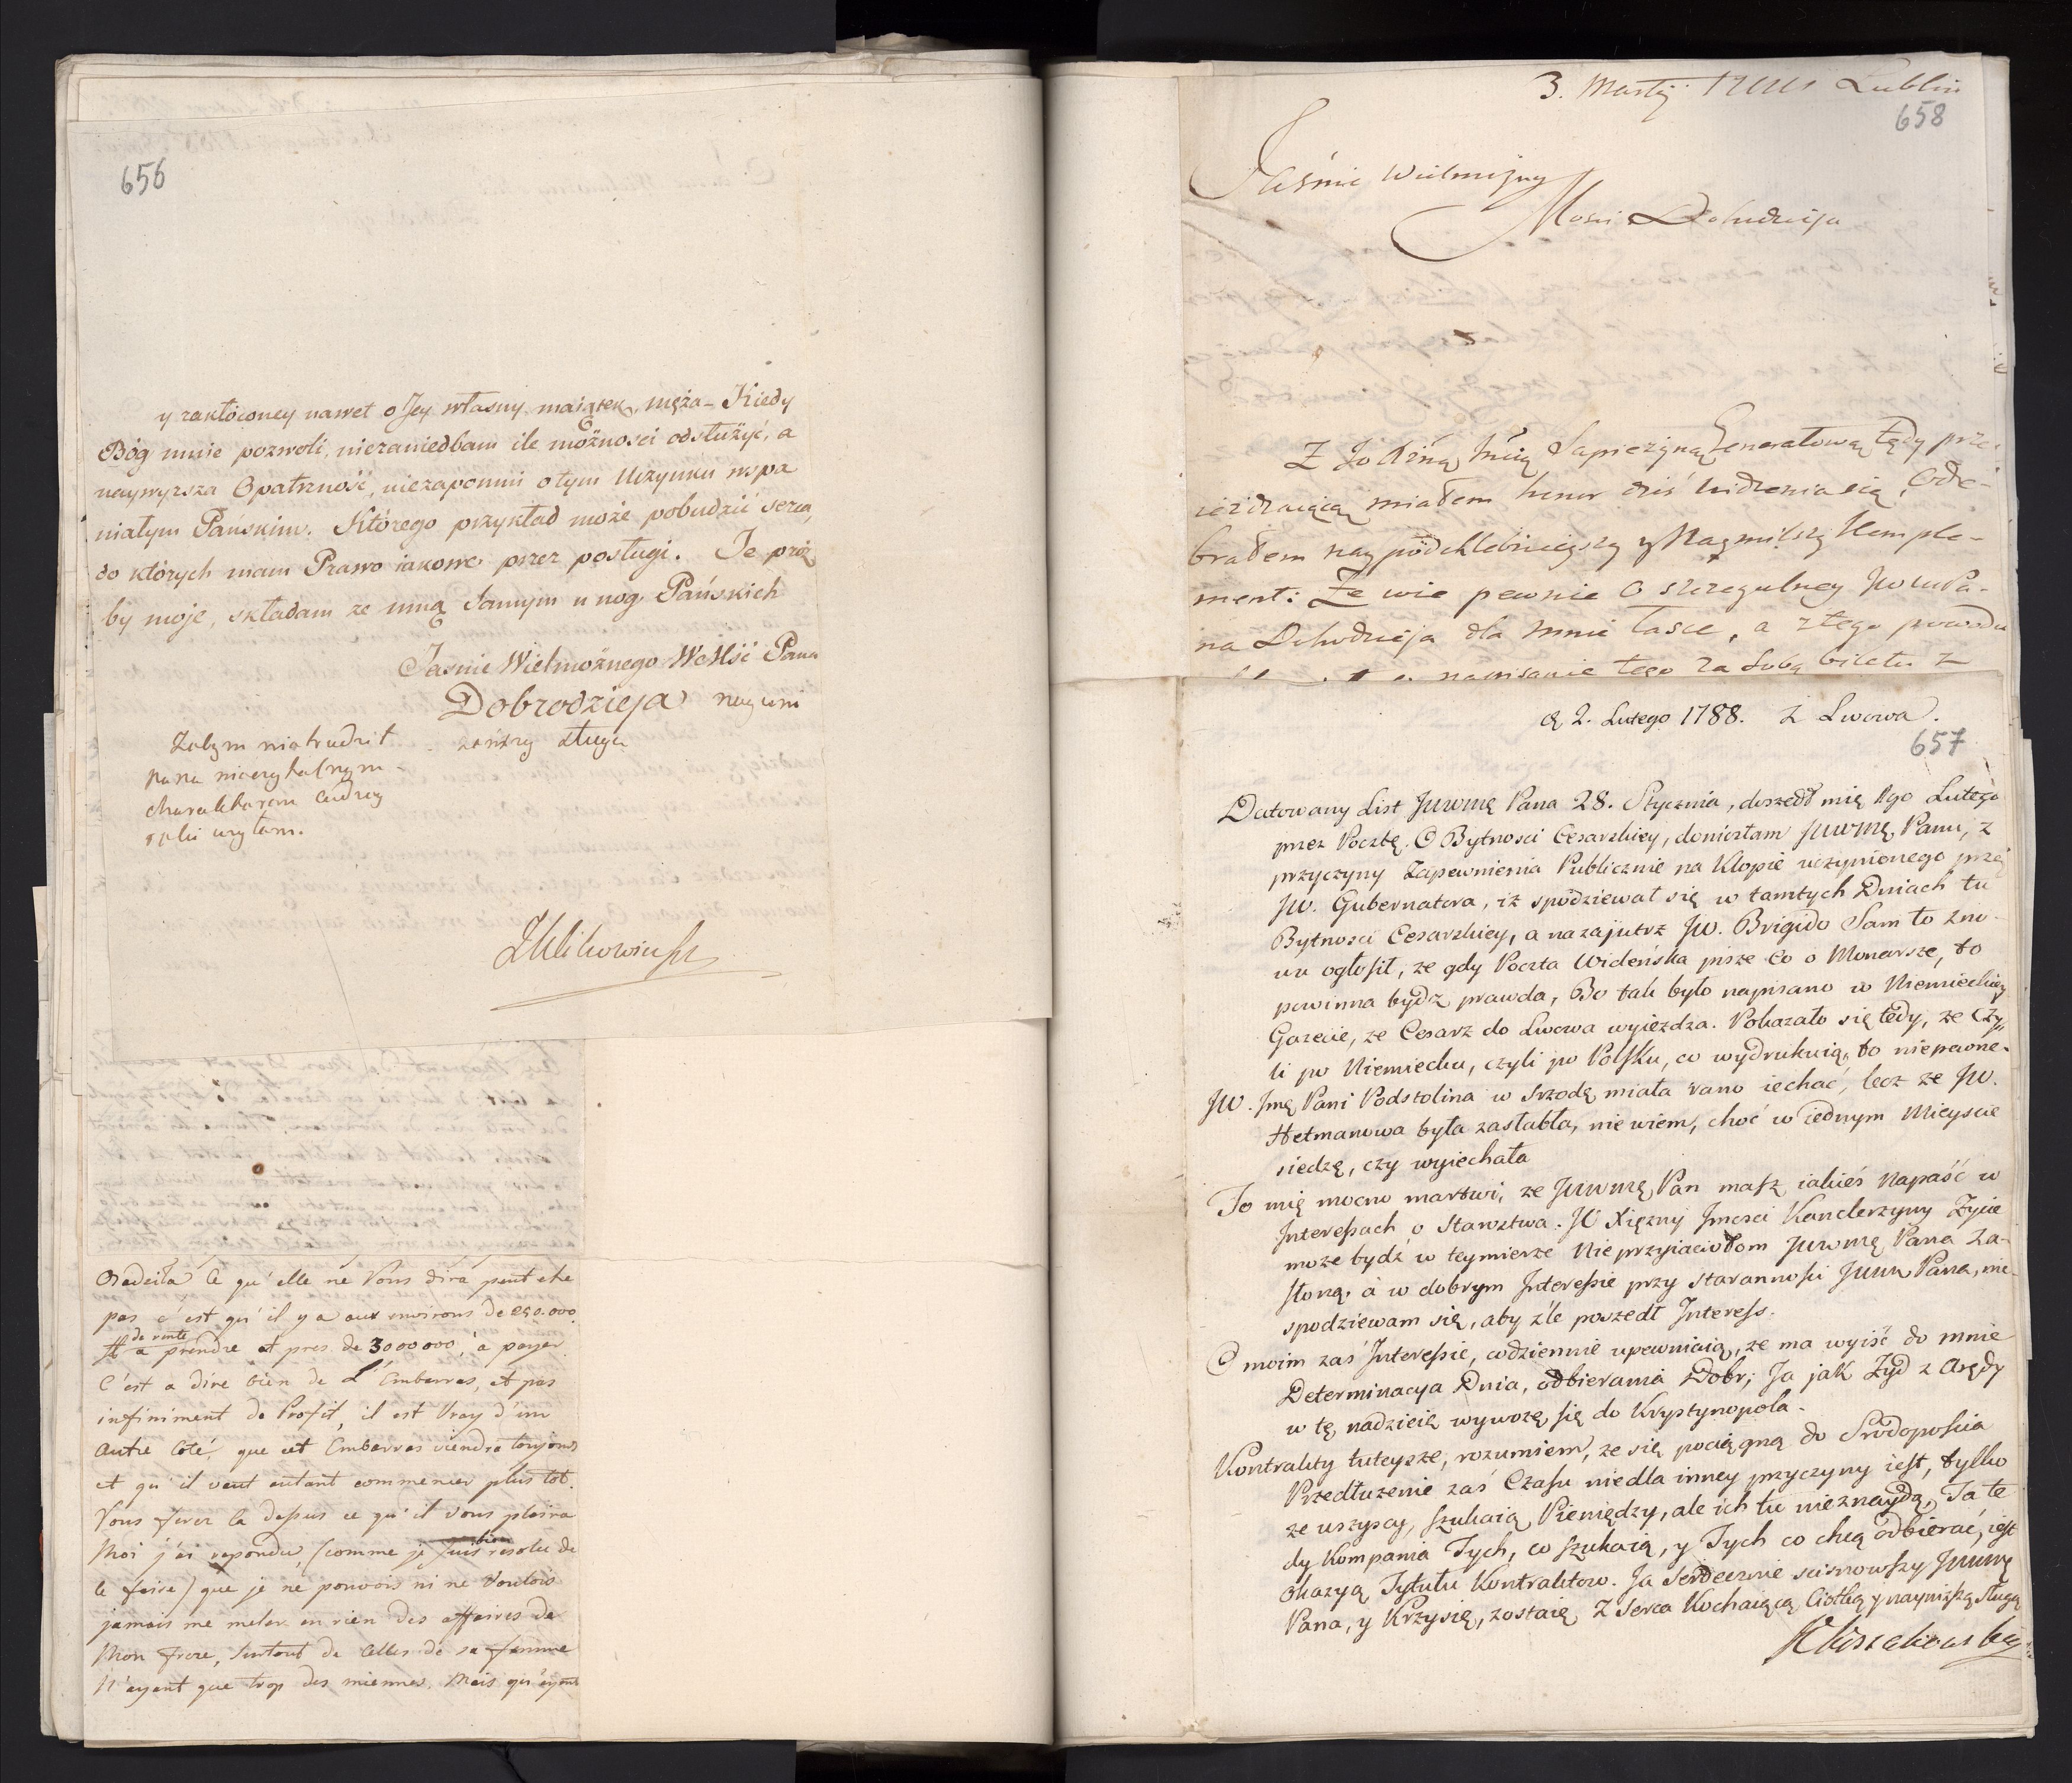 656
y zakłóconey nawet o Jey własny maiątek, męża - Kiedy
Bóg mnie pozwoli, niezaniedbam ile możnosci odsłużyć, a
naywyzsza Opatrzność, niezapomni otym Uczynku wspa
niałym Pańskim. Którego przykład może pobudzić serca,
do których mam Prawo iakowe przez posługi. Te proź
by moje, składam ze mną samym u nog Pańskich
Jasnie Wielmożnego WcMść Pana
Dobrodzieja nayuni
żeńszy sługa
Zebym nietrudził
pana nieczytelnym
charakterem cudzey
ręki użyłam.
Radziła Ce qu'elle ne Vous dira peut etre
pas c'est qu'il y a aux environs de 250.000
de rente
tt a prendre et pres de 3000000, à payer.
C'est a dire bien de L'Embarras, et pas
infiniment de Profit, il est Vray d'un
autre Coté, que cet Embarras viendra toujours
et qu'il vaut autant commencer plus tot.
Vous ferez la dessus ce qu'il Vous plaira
bien
Moi j'ai repondu, (comme je suis resolu de
le faire) que je ne pouvois ni ne Voulois
jamais me meler en rien des affaires de
Mon frere, surtout de Celles de sa femme
N'ayant que trop des miennes. Mais qu'ayant
3. Martij Lublin
658
Jaśnie Wielmożny
Mosci Dobrodzieju
Z Jo Sapieżyną Generałową tędy prze-
ieżdzaiącą miałem honor dziś widzenia się, Ode-
brałem naypodchlebnieyszy y Naymilszy Komple-
ment: Że wie pewnie O szczegulney JWWPa-
na Dobrodzieja dla mnie łasce, a ztego powodu
napisanie tego za sobą biletu z
d. 2. Lutego 1788. z Lwowa.
657
Datowany List JWWMę Pana 28. Stycznia, doszedł mię 1go Lutego
przez Pocztę. O Bytnosci Cesarskiey, doniosłam JWWMę Panu, z
przyczyny Zapewnienia Publicznie na Klopie uczynionego przez
JW. Gubernatora, iż spodziewał się w tamtych Dniach tu
Bytnosci Cesarskiey, a nazajutrz JW. Brigido Sam to zno-
wu ogłosił, ze gdy Poczta Wideńska pisze Co o Monarsze, to
powinna bydz prawda, Bo tak było napisano w Niemieckiey
Gazecie, ze Cesarz do Lwowa wyiezdza. Pokazało się tédy, ze Czy-
li po Niemiecku, czyli po Polsku, co wydrukuią, to niepewne.
JW. Jmę Pani Podstolina w Srzodę miała rano iechać, lecz ze JW.
Hetmanowa była zasłabła, nie wiem, choć w iednym Mieyscie
siedzę, czy wyiechała
To mię mocno martwi, ze JWWMę Pan masz iakieś Napaść w
Interessach o Starostwa. JO Xiężny Jmosci Kanclerzyny Zycie
moze bydź w teymierze Nieprzyiaciołom JWWMę Pana Za-
słoną, a w dobrym Interessie przy starannosci JWWM Pana, nie-
spodziewam się, aby źle poszedł Interess.
O moim zaś Interessie, codziennie upewniaią, ze ma wyiść do mnie
Determinacya Dnia, odbierania Dobr; Ja jak Żyd z Arędy
w tę nadzieię wywozę się do Krystynopola.
Kontrakty tuteysze, rozumiem, ze się pociągną do Srodoposcia
Przedłuzenie zaś Czasu niedla inney przyczyny iest, tylko
ze wszyscy, szukaią Pieniędzy, ale ich tu nieznaydą, Ta te
dy Kompania Tych, co szukaią, y Tych co chcą odbierać, iest
okazyą Tytułu Kontraktow. Ja Serdecznie scisnowszy JWWMę
Pana, y Krzysię, zostaię Z Serca Kochaiącą Ciotką y nayniższą Sługą